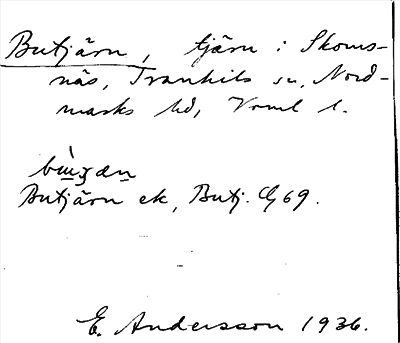 Butjärn, tjärn i Skoms-
näs, Trankils sn, Nord-
marks hd, Vrml l.
bu̠̇ʒæn
Butjärn ek, Butj. G 69.
E. Andersson 1936.